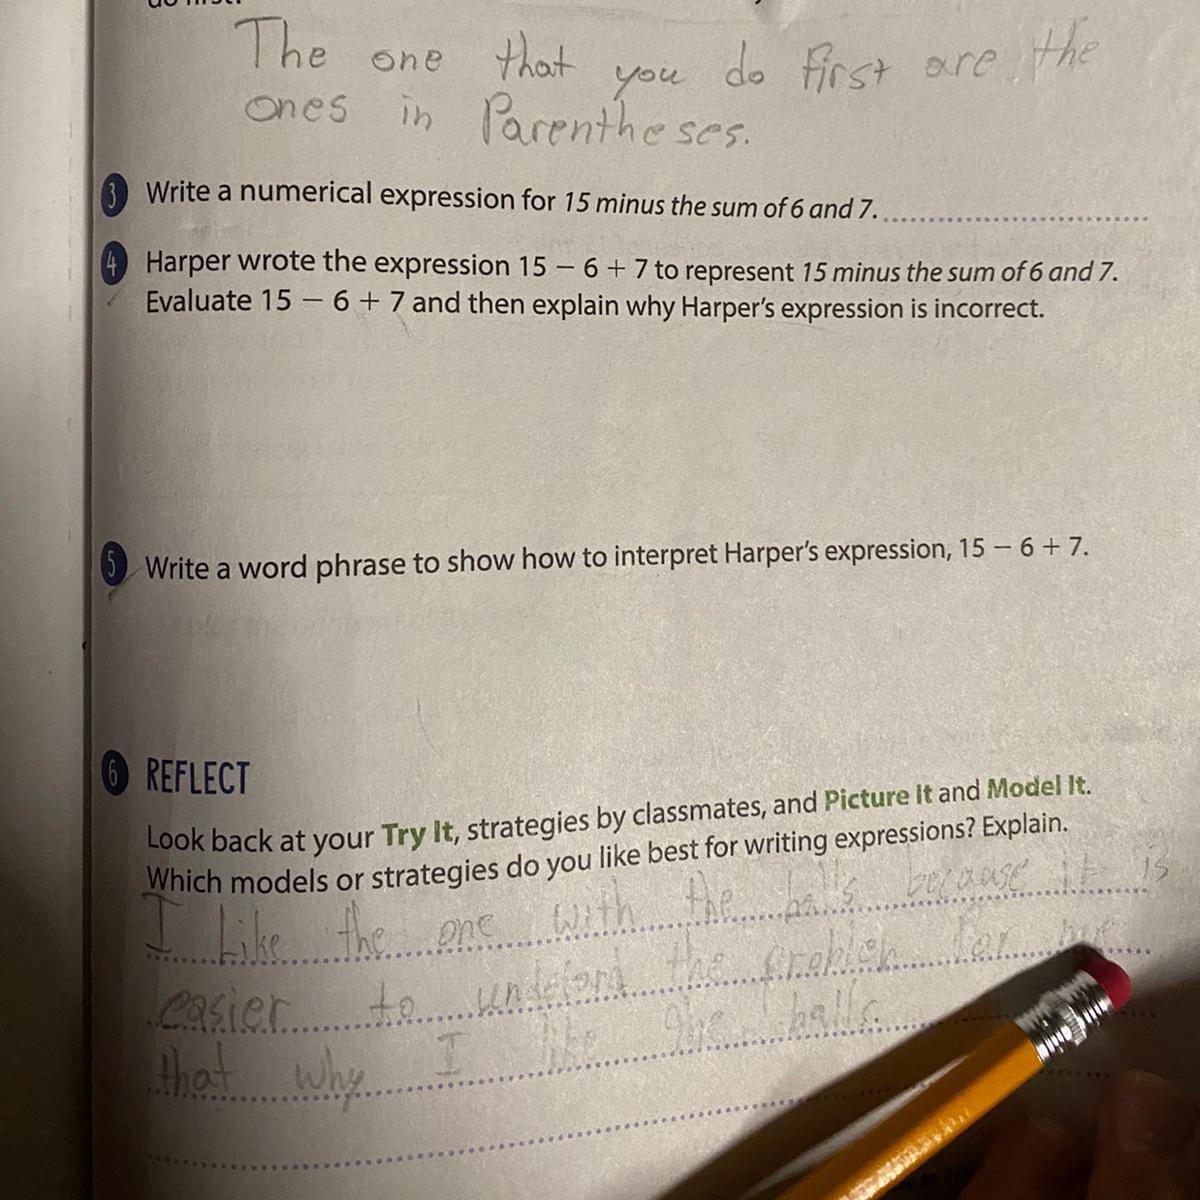 do first.
The one that you do first are the
ones in Parentheses.
3 Write a numerical expression for 15 minus the sum of 6 and 7.
4 Harper wrote the expression 15 – 6 + 7 to represent 15 minus the sum of 6 and 7.
Evaluate 15 – 6 + 7 and then explain why Harper's expression is incorrect.
5 Write a word phrase to show how to interpret Harper's expression, 15 – 6 + 7.
6 REFLECT
Look back at your Try It, strategies by classmates, and Picture It and Model It.
Which models or strategies do you like best for writing expressions? Explain.
I Like the one with the balls because it is
easier to the problem for me
that why I like the balls.